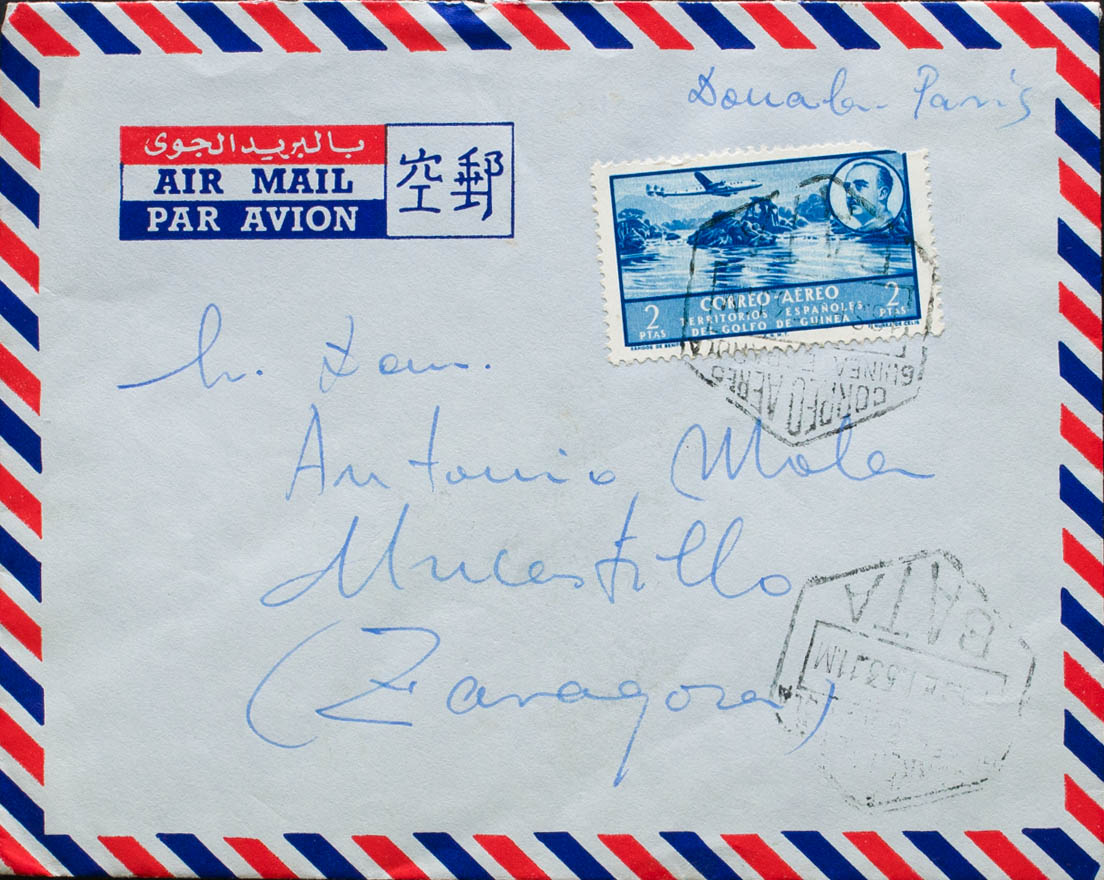 Douala - Paris
بالبريد الجوى
AIR MAIL
PAR AVION
空郵
CORREO-AÉREO
2 PTAS
TERRITORIOS ESPAÑOLES
DEL GOLFO DE GUINEA
2 PTAS
CORREO AEREO
GUINEA
Antonio Mola
(Zaragoza)
BATA
53.11M